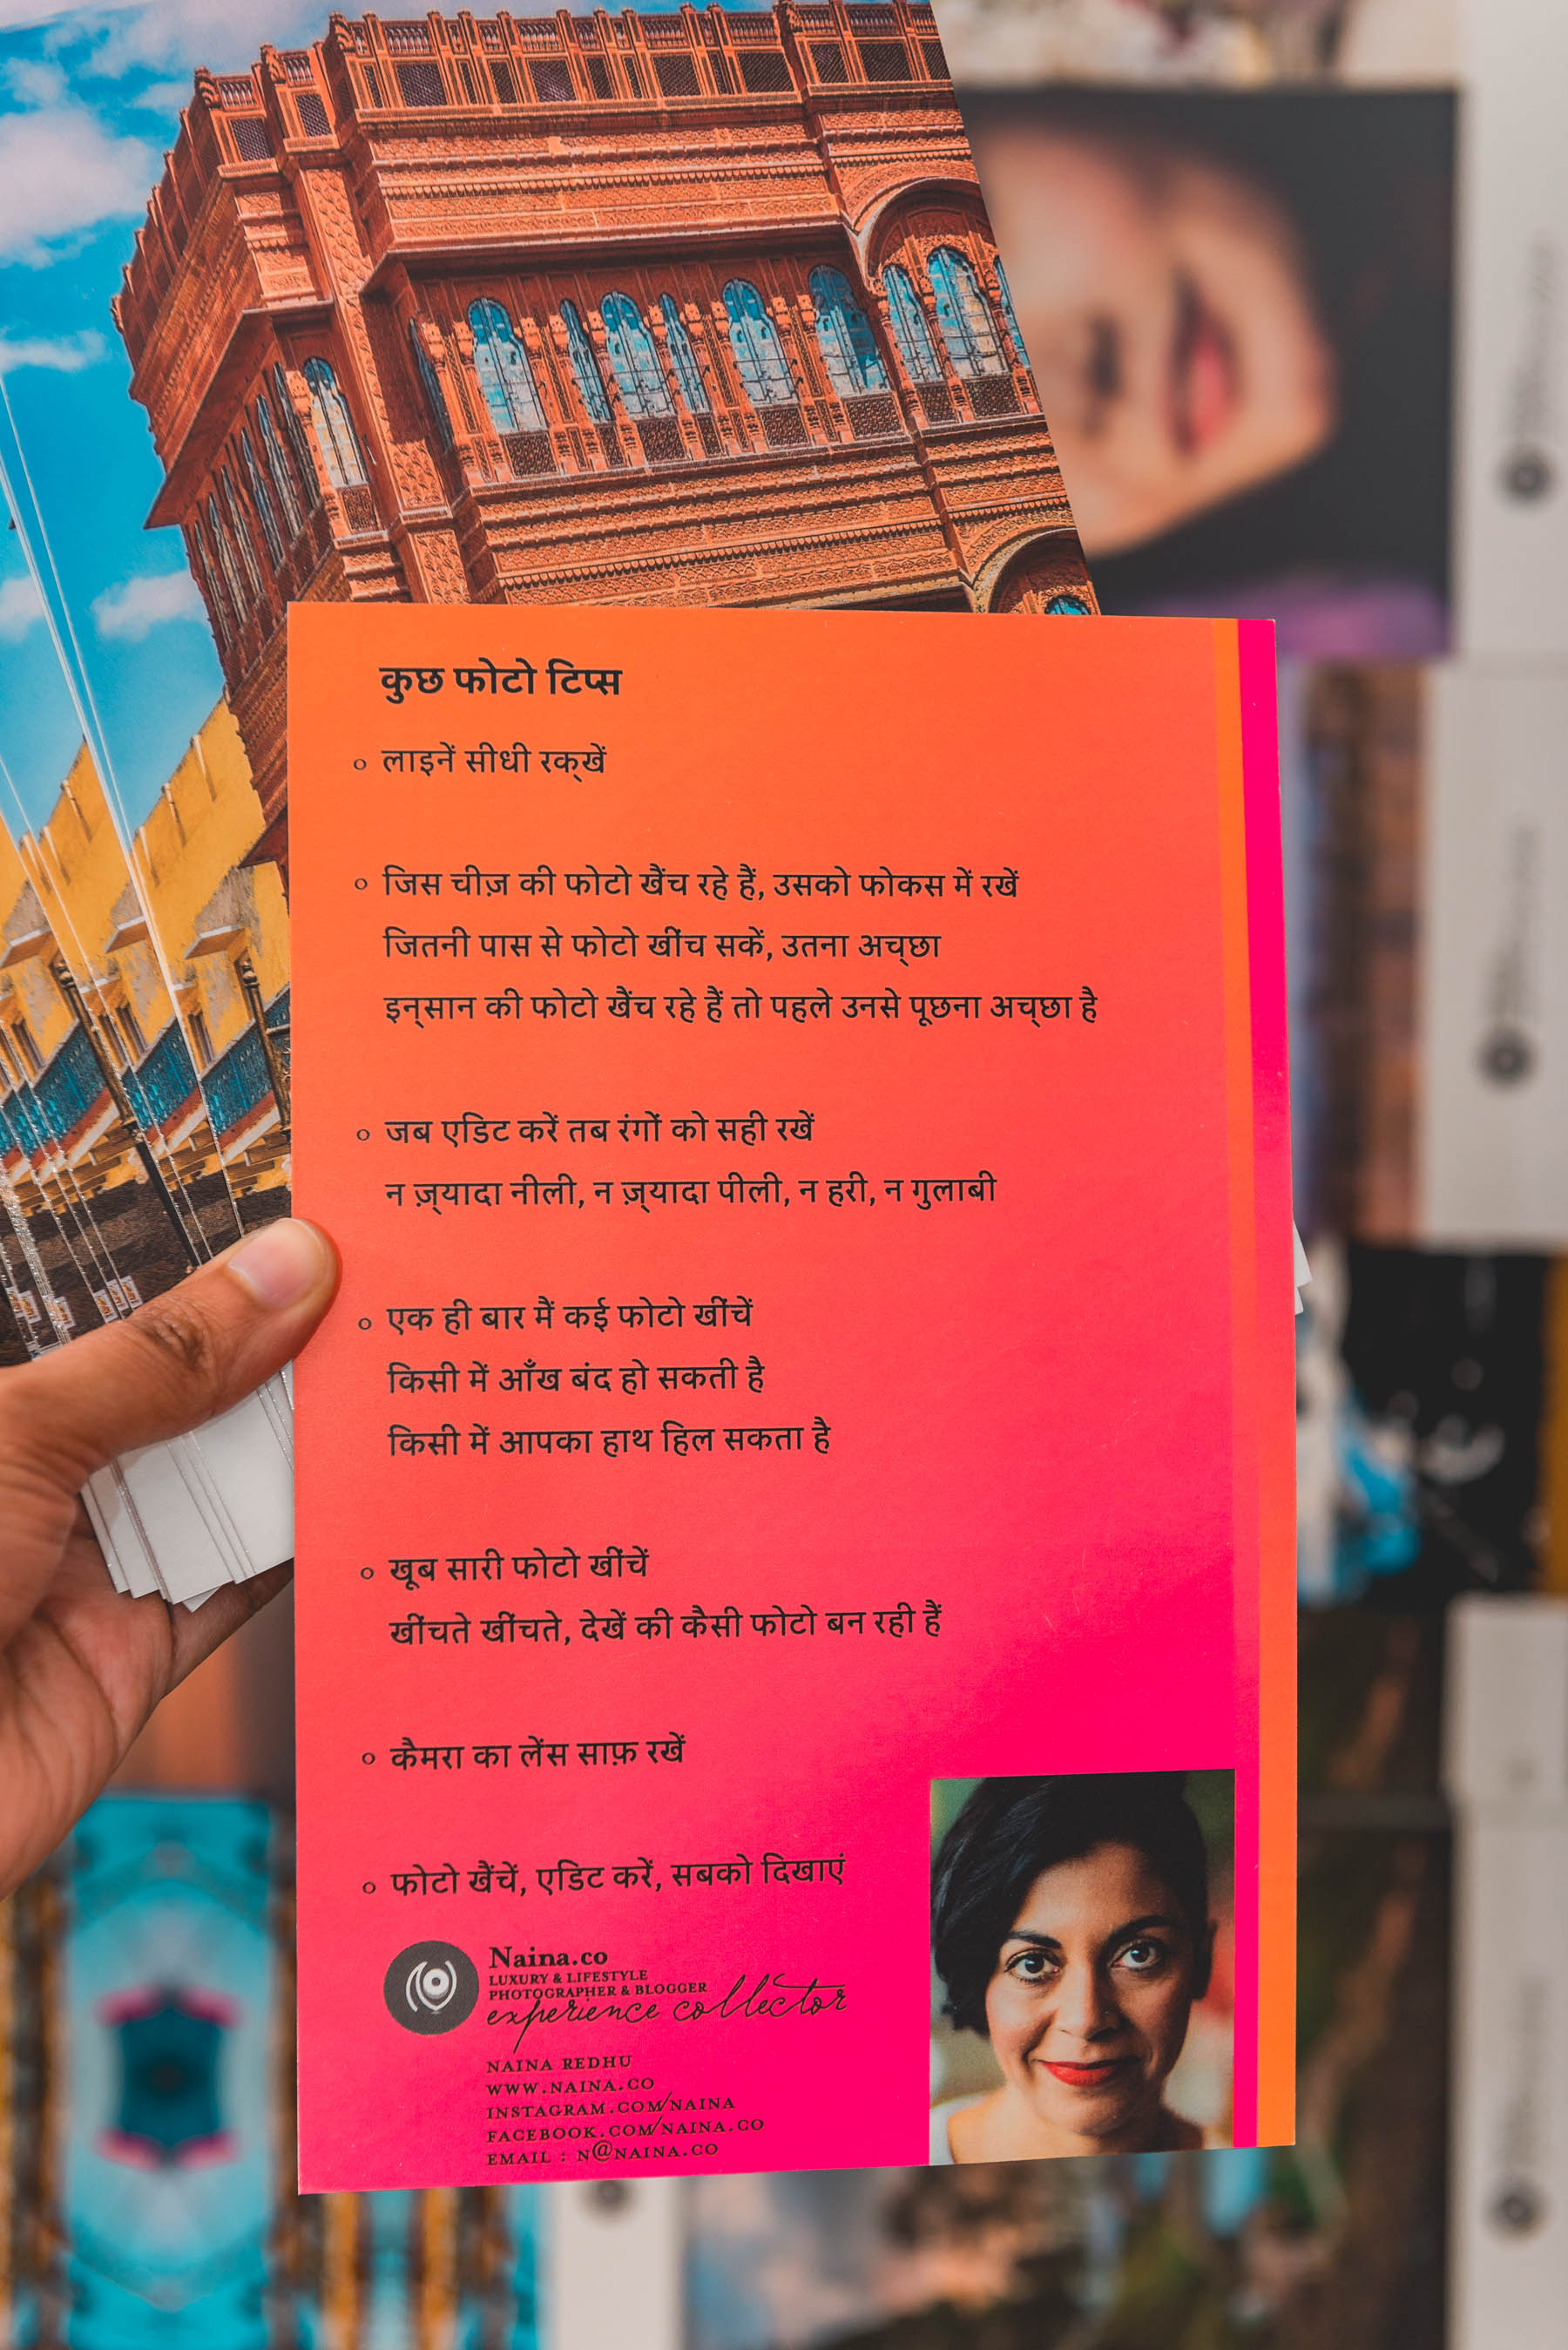 कुछ फोटो टिप्स
० लाइनें सीधी रक्खें
० जिस चीज़ की फोटो खैंच रहे हैं, उसको फोकस में रखें
जितनी पास से फोटो खींच सकें, उतना अच्छा
इन्सान की फोटो खैंच रहे हैं तो पहले उनसे पूछना अच्छा है
० जब एडिट करें तब रंगों को सही रखें
न ज़्यादा नीली, न ज़्यादा पीली, न हरी, न गुलाबी
० एक ही बार मैं कई फोटो खींचें
किसी में आँख बंद हो सकती है
किसी में आपका हाथ हिल सकता है
० खूब सारी फोटो खींचें
खींचते खींचते, देखें की कैसी फोटो बन रही हैं
० कैमरा का लेंस साफ़ रखें
० फोटो खैंचें, एडिट करें, सबको दिखाएं
Naina.co
LUXURY & LIFESTYLE
PHOTOGRAPHER & BLOGGER
experience collector
NAINA REDHU
WWW.NAINA.CO
INSTAGRAM.COM/NAINA
FACEBOOK.COM/NAINA.CO
EMAIL : N@NAINA.CO